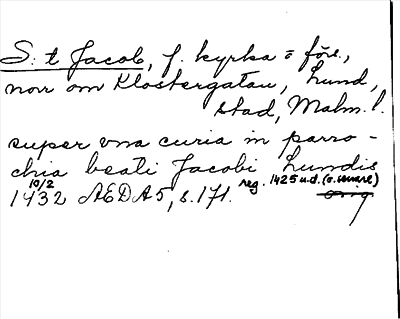 S:t Jacob, f. kyrka o förs.,
norr om Klostergatan, Lund,
stad, Malm. l.
super vna curia in parro-
chia beati Jacobi Lundis
10/2
1432 AEDA5, s. 171. reg. 1425 u.d. (o. senare)
orig